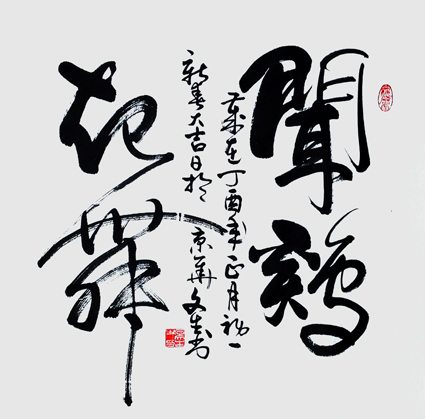 聞鷄
起舞
歲在丁酉年正月初一
新春大吉日於
京華文生書